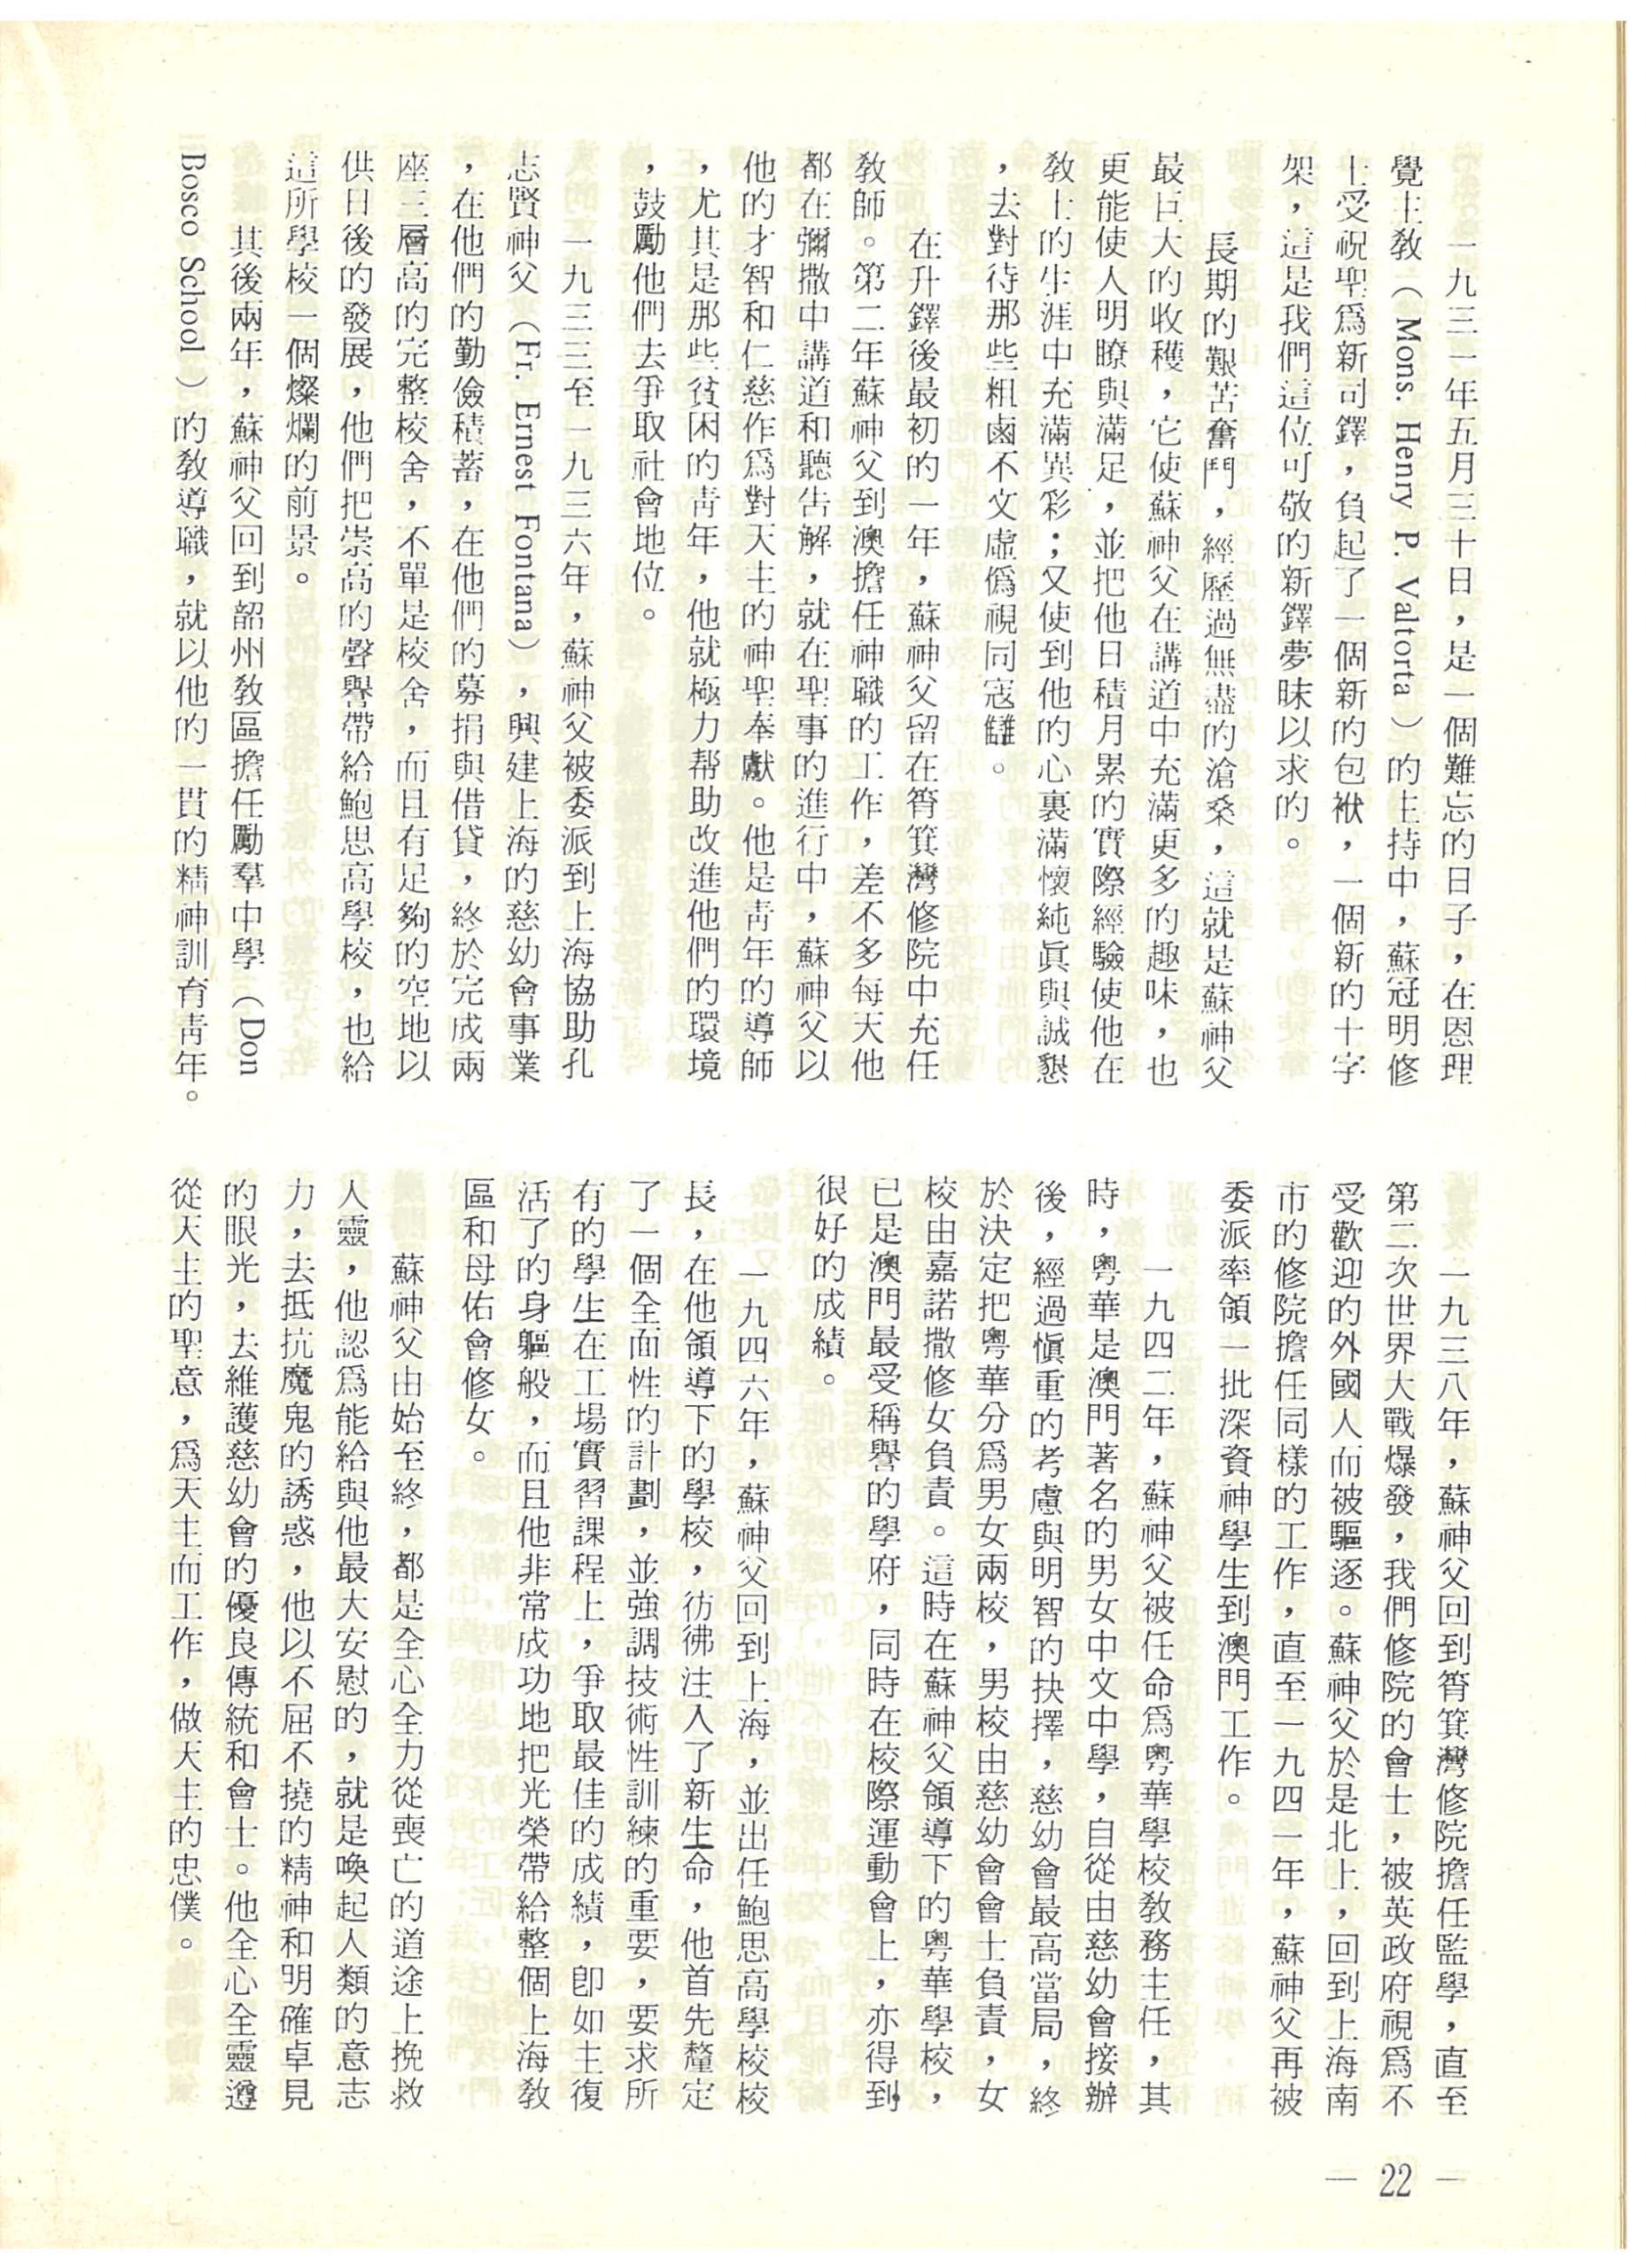 一九三一年五月三十日，是一個難忘的日子，在恩理
覺主敎（Mons. Henry P. Valtorta）的主持中，蘇冠明修
士受祝聖爲新司鐸，負起了一個新的包袱，一個新的十字
架，這是我們這位可敬的新鐸夢昧以求的。
長期的艱苦奮鬥，經歷過無盡的滄桑，這就是蘇神父
最巨大的收穫，它使蘇神父在講道中充滿更多的趣味，也
更能使人明瞭與滿足，並把他日積月累的實際經驗使他在
敎士的生涯中充滿異彩；又使到他的心裏滿懷純眞與誠懇
，去對待那些粗鹵不文虛僞視同寇讎。
在升鐸後最初的一年，蘇神父留在筲箕灣修院中充任
敎師。第二年蘇神父到澳擔任神職的工作，差不多每天他
都在彌撒中講道和聽告解，就在聖事的進行中，蘇神父以
他的才智和仁慈作爲對天主的神聖奉獻。他是靑年的導師
，尤其是那些貧困的靑年，他就極力帮助改進他們的環境
，鼓勵他們去爭取社會地位。
一九三三至一九三六年，蘇神父被委派到上海協助孔
志賢神父（Fr. Ernest Fontana），興建上海的慈幼會事業
，在他們的勤儉積蓄，在他們的募捐與借貸，終於完成兩
座三層高的完整校舍，不單是校舍，而且有足夠的空地以
供日後的發展，他們把崇高的聲譽帶給鮑思高學校，也給
這所學校一個燦爛的前景。
其後兩年，蘇神父回到韶州敎區擔任勵羣中學（Don
Bosco School）的敎導職，就以他的一貫的精神訓育靑年。
一九三八年，蘇神父回到筲箕灣修院擔任監學，直至
第二次世界大戰爆發，我們修院的會士，被英政府視爲不
受歡迎的外國人而被驅逐。蘇神父於是北上，回到上海南
市的修院擔任同樣的工作，直至一九四一年，蘇神父再被
委派率領一批深資神學生到澳門工作。
一九四二年，蘇神父被任命爲粵華學校敎務主任，其
時，粵華是澳門著名的男女中文中學，自從由慈幼會接辦
後，經過愼重的考慮與明智的抉擇，慈幼會最高當局，終
於決定把粵華分爲男女兩校，男校由慈幼會會士負責，女
校由嘉諾撒修女負責。這時在蘇神父領導下的粵華學校，
已是澳門最受稱譽的學府，同時在校際運動會上，亦得到
很好的成績。
一九四六年，蘇神父回到上海，並出任鮑思高學校校
長，在他領導下的學校，彷彿注入了新生命，他首先釐定
了一個全面性的計劃，並強調技術性訓練的重要，要求所
有的學生在工場實習課程上，爭取最佳的成績，卽如主復
活了的身軀般，而且他非常成功地把光榮帶給整個上海敎
區和母佑會修女。
蘇神父由始至終，都是全心全力從喪亡的道途上挽救
人靈，他認爲能給與他最大安慰的，就是喚起人類的意志
力，去抵抗魔鬼的誘惑，他以不屈不撓的精神和明確卓見
的眼光，去維護慈幼會的優良傳統和會士。他全心全靈遵
從天主的聖意，爲天主而工作，做天主的忠僕。
— 22 —